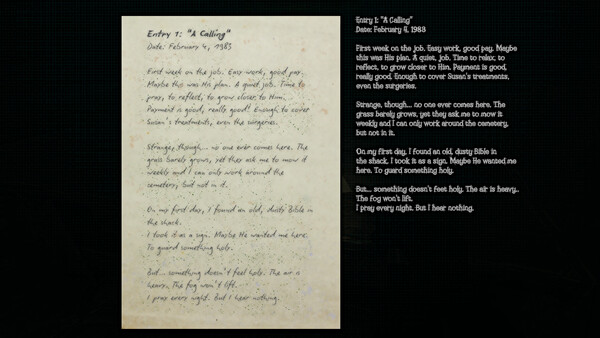 Entry 1: "A Calling"
Date: February 4, 1983
First week on the job. Easy work, good pay.
Maybe this was His plan. A quiet job. Time to
pray, to reflect, to grow closer to Him.
Payment is good, really good! Enough to cover
Susan's treatments, even the surgeries.
Strange, though... no one ever comes here. The
grass barely grows, yet they ask me to mow it
weekly and I can only work around the
cemetery, but not in it.
On my first day, I found an old, dusty Bible in
the shack.
I took it as a sign. Maybe He wanted me here.
To guard something holy.
But... something doesn't feel holy. The air is
heavy. The fog won't lift.
I pray every night. But I hear nothing.
Entry 1: "A Calling"
Date: February 4, 1983
First week on the job. Easy work, good pay. Maybe
this was His plan. A quiet job. Time to relax, to
reflect, to grow closer to Him. Payment is good,
really good. Enough to cover Susan's treatments,
even the surgeries.
Strange, though... no one ever comes here. The
grass barely grows, yet they ask me to mow it
weekly and I can only work around the cemetery,
but not in it.
On my first day, I found an old, dusty Bible in
the shack. I took it as a sign. Maybe He wanted me
here. To guard something holy.
But... something doesn't feel holy. The air is heavy..
The fog won't lift.
I pray every night. But I hear nothing.